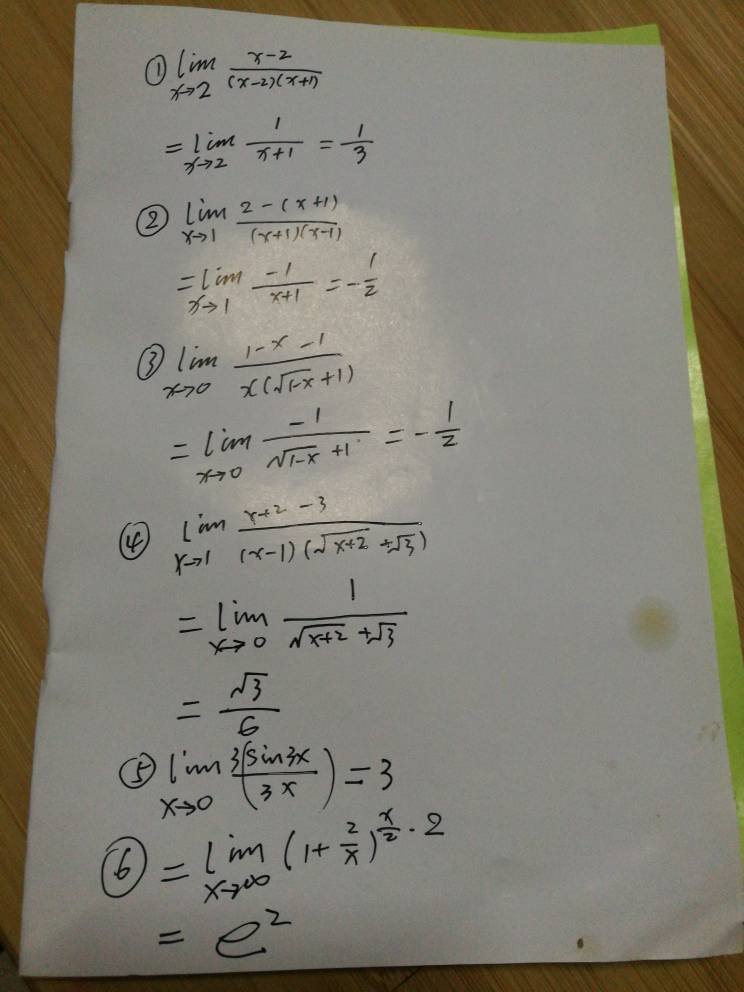 ① lim x→2 (x-2)/((x-2)(x+1))
= lim x→2 1/(x+1) = 1/3
② lim x→1 (2-(x+1))/((x+1)(x-1))
= lim x→1 -1/(x+1) = -1/2
③ lim x→0 (1-x-1)/(x(√(1-x)+1))
= lim x→0 -1/(√(1-x)+1) = -1/2
④ lim x→1 (x+2-3)/((x-1)(√(x+2)+√3))
= lim x→0 1/(√(x+2)+√3)
= √3/6
⑤ lim x→0 3(sin3x/3x) = 3
⑥ = lim x→∞ (1+2/x)^(x/2·2)
= e²